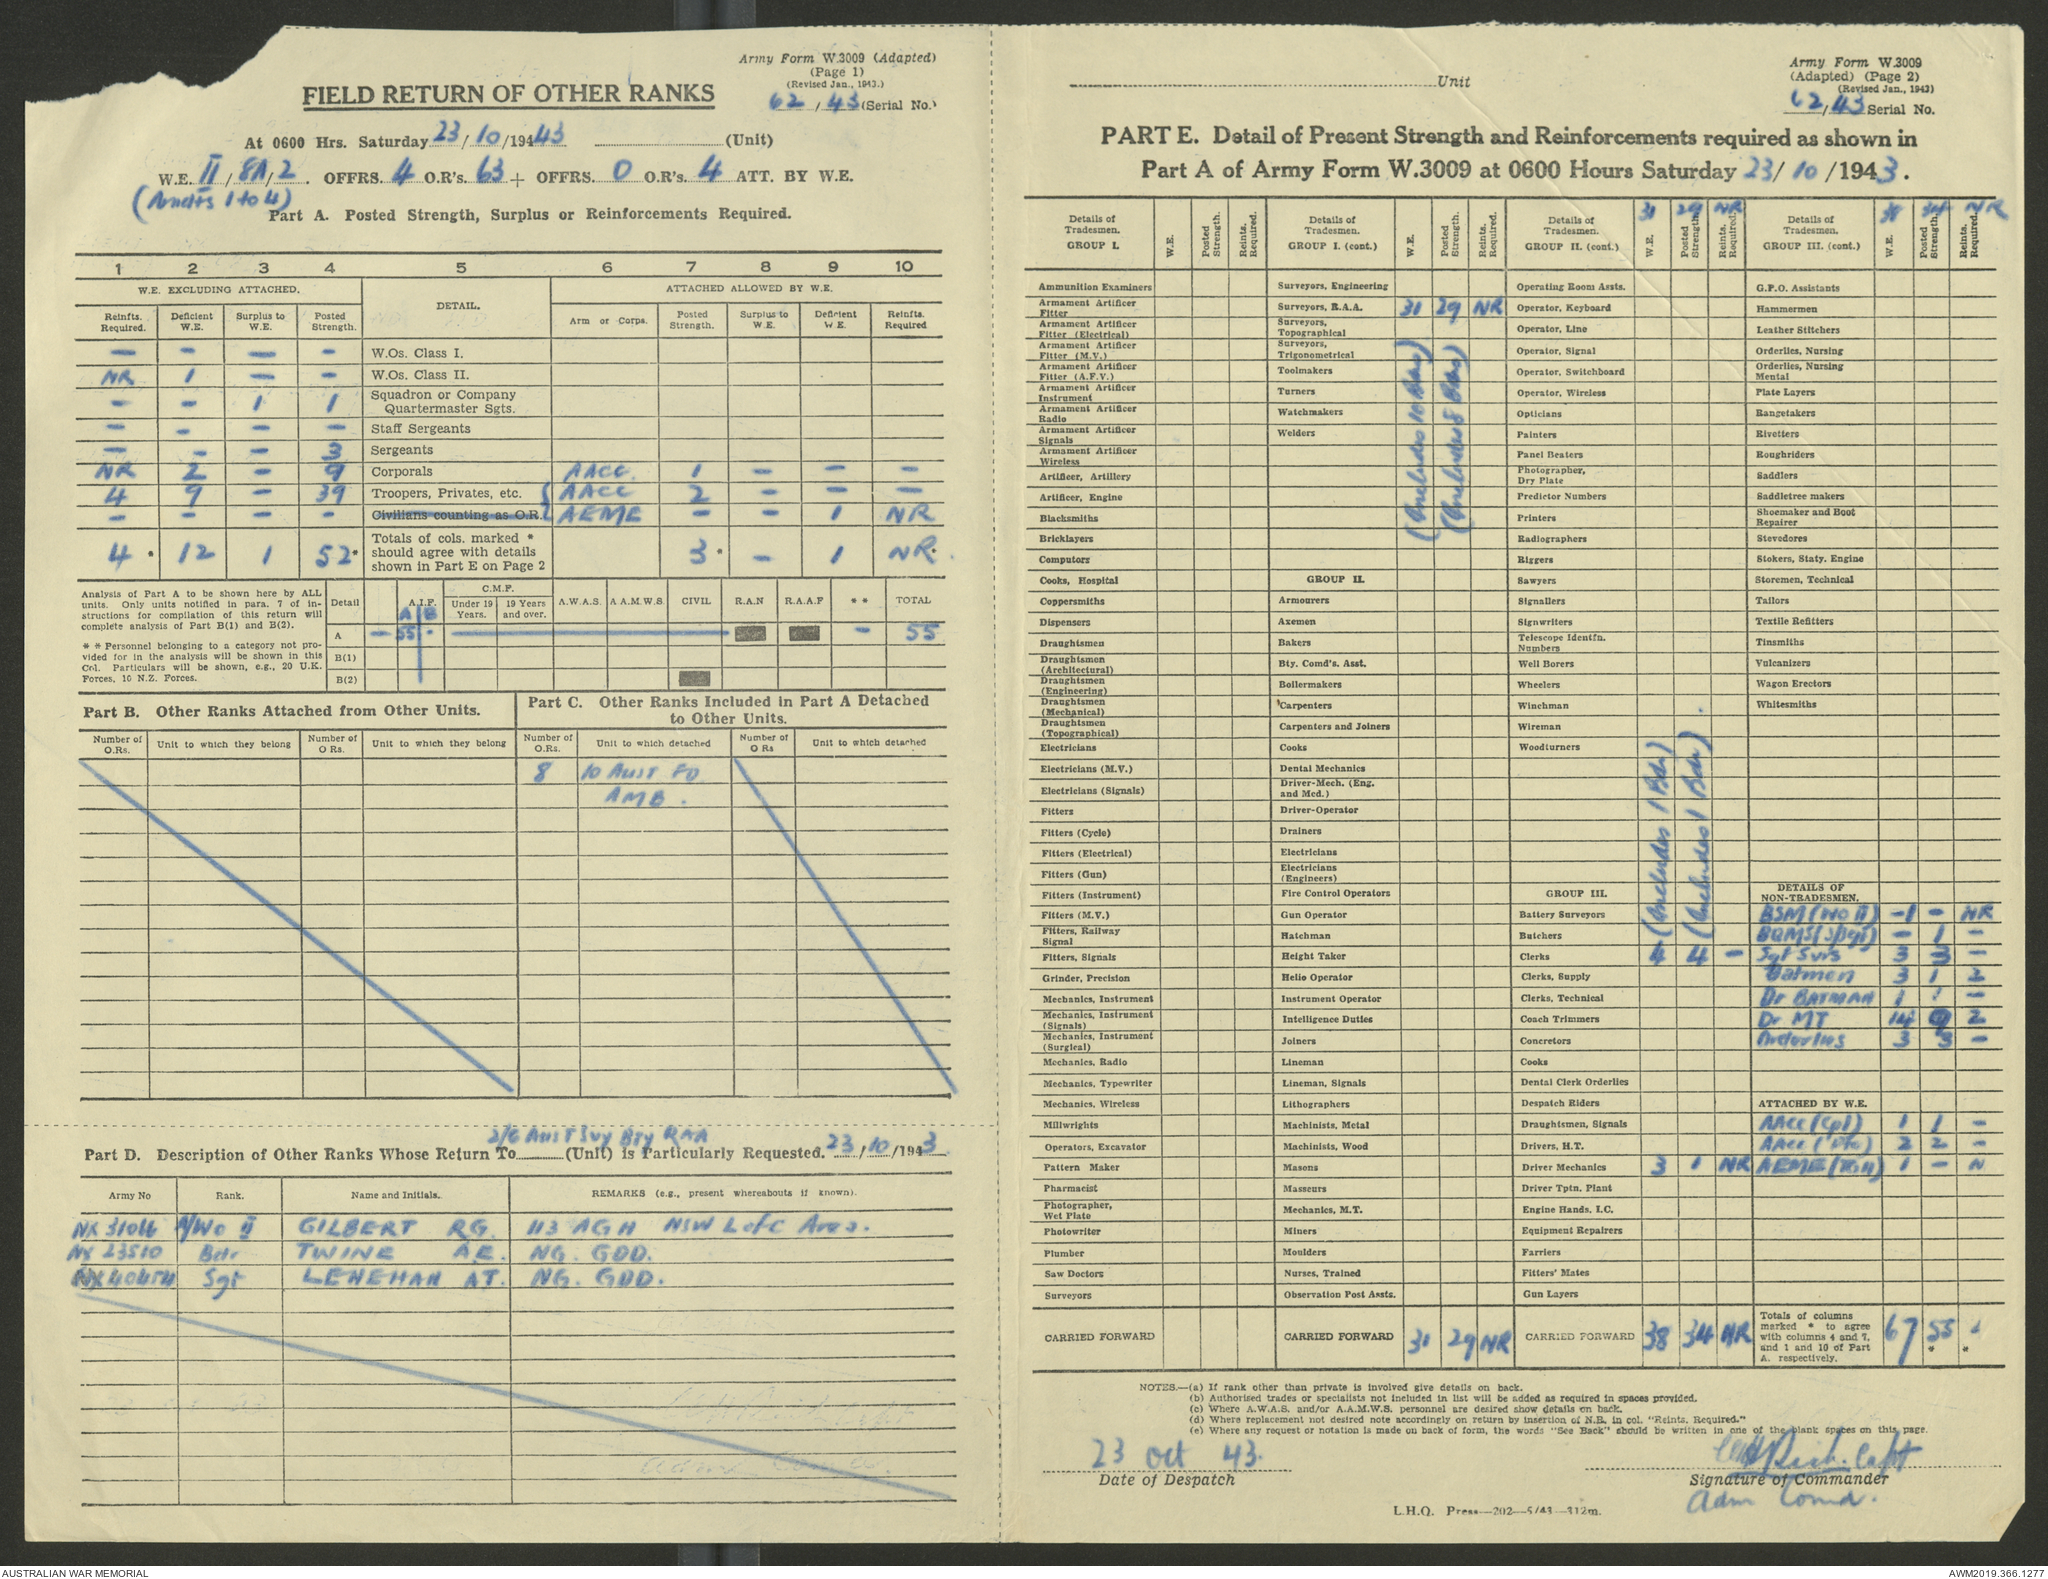 Army Form W.3009 (Adapted)
(Page 1)
(Revised Jan., 1943.)
62/43 (Serial No.)
FIELD RETURN OF OTHER RANKS
At 0600 Hrs. Saturday 23/10/1943 (Unit)
W.E. II/8A/2. OFFRS. 4 O.R's. 63 + OFFRS. 0 O.R's. 4 ATT. BY W.E.
(Amdts 1 to 4)
Part A. Posted Strength, Surplus or Reinforcements Required.
1 2 3 4 5 6 7 8 9 10
W.E. EXCLUDING ATTACHED. DETAIL. ATTACHED ALLOWED BY W.E.
Reinfts. Required. Deficient W.E. Surplus to W.E. Posted Strength. Arm or Corps. Posted Strength. Surplus to W.E. Deficient W.E. Reinfts. Required
— — — — W.Os. Class I.
NR 1 — — W.Os. Class II.
— — 1 1 Squadron or Company Quartermaster Sgts.
— — — — Staff Sergeants
— — — 3 Sergeants
NR 2 — 9 Corporals AACC. 1 — — —
4 9 — 39 Troopers, Privates, etc. AACC 2 — — —
— — — — Civilians counting as O.R. AEME — — 1 NR
4* 12 1 52* Totals of cols. marked * should agree with details shown in Part E on Page 2 3* — 1 NR*
Analysis of Part A to be shown here by ALL units. Only units notified in para. 7 of instructions for compilation of this return will complete analysis of Part B(1) and B(2).
** Personnel belonging to a category not provided for in the analysis will be shown in this Col. Particulars will be shown, e.g., 20 U.K. Forces, 10 N.Z. Forces.
Detail A.I.F. C.M.F. Under 19 Years. 19 Years and over. A.W.A.S. A.A.M.W.S. CIVIL R.A.N R.A.A.F ** TOTAL
A B
A — 55 - — 55
B(1)
B(2)
Part B. Other Ranks Attached from Other Units.
Part C. Other Ranks Included in Part A Detached to Other Units.
Number of O.Rs. Unit to which they belong Number of O Rs. Unit to which they belong Number of O.Rs. Unit to which detached Number of O Rs Unit to which detached
8 10 AUST FD
AMB.
2/6 Aust Svy Bty RAA
Part D. Description of Other Ranks Whose Return To (Unit) is Particularly Requested. 23/10/1943
Army No Rank. Name and Initials. REMARKS (e.g., present whereabouts if known).
NX 31066 A/WO II GILBERT RG. 113 AGH NSW L of C Area.
NX 23510 Bdr TWINE A.E. NG. GDD.
NX 40454 Sgt LENEHAN AT. NG. GDD.
Unit
Army Form W.3009
(Adapted) (Page 2)
(Revised Jan., 1943)
62/43 Serial No.
PART E. Detail of Present Strength and Reinforcements required as shown in
Part A of Army Form W.3009 at 0600 Hours Saturday 23/10/1943.
Details of Tradesmen. GROUP I. W.E. Posted Strength. Reints. Required.
Ammunition Examiners
Armament Artificer Fitter
Armament Artificer Fitter (Electrical)
Armament Artificer Fitter (M.V.)
Armament Artificer Fitter (A.F.V.)
Armament Artificer Instrument
Armament Artificer Radio
Armament Artificer Signals
Armament Artificer Wireless
Artificer, Artillery
Artificer, Engine
Blacksmiths
Bricklayers
Computors
Cooks, Hospital
Coppersmiths
Dispensers
Draughtsmen
Draughtsmen (Architectural)
Draughtsmen (Engineering)
Draughtsmen (Mechanical)
Draughtsmen (Topographical)
Electricians
Electricians (M.V.)
Electricians (Signals)
Fitters
Fitters (Cycle)
Fitters (Electrical)
Fitters (Gun)
Fitters (Instrument)
Fitters (M.V.)
Fitters, Railway Signal
Fitters, Signals
Grinder, Precision
Mechanics, Instrument
Mechanics, Instrument (Signals)
Mechanics, Instrument (Surgical)
Mechanics, Radio
Mechanics, Typewriter
Mechanics, Wireless
Millwrights
Operators, Excavator
Pattern Maker
Pharmacist
Photographer, Wet Plate
Photowriter
Plumber
Saw Doctors
Surveyors
CARRIED FORWARD
Details of Tradesmen. GROUP I. (cont.) W.E. Posted Strength. Reints. Required.
Surveyors, Engineering
Surveyors, R.A.A. 31 29 NR
Surveyors, Topographical
Surveyors, Trigonometrical
Toolmakers
Turners
Watchmakers
Welders
(includes 10 Bdrs)
(includes 8 Bdrs)
GROUP II.
Armourers
Axemen
Bakers
Bty. Comd's. Asst.
Boilermakers
Carpenters
Carpenters and Joiners
Cooks
Dental Mechanics
Driver-Mech. (Eng. and Med.)
Driver-Operator
Drainers
Electricians
Electricians (Engineers)
Fire Control Operators
Gun Operator
Hatchman
Height Taker
Helio Operator
Instrument Operator
Intelligence Duties
Joiners
Lineman
Lineman, Signals
Lithographers
Machinists, Metal
Machinists, Wood
Masons
Masseurs
Mechanics, M.T.
Miners
Moulders
Nurses, Trained
Observation Post Assts.
CARRIED FORWARD 31 29 NR
Details of Tradesmen. GROUP II. (cont.) W.E. Posted Strength. Reints. Required.
31 29 NR
Operating Room Assts.
Operator, Keyboard
Operator, Line
Operator, Signal
Operator, Switchboard
Operator, Wireless
Opticians
Painters
Panel Beaters
Photographer, Dry Plate
Predictor Numbers
Printers
Radiographers
Riggers
Sawyers
Signallers
Signwriters
Telescope Identfn. Numbers
Well Borers
Wheelers
Winchman
Wireman
Woodturners
(includes 1 Bdr)
(includes 1 Bdr)
GROUP III.
Battery Surveyors
Butchers
Clerks 4 4 —
Clerks, Supply
Clerks, Technical
Coach Trimmers
Concretors
Cooks
Dental Clerk Orderlies
Despatch Riders
Draughtsmen, Signals
Drivers, H.T.
Driver Mechanics 3 1 NR
Driver Tptn. Plant
Engine Hands, I.C.
Equipment Repairers
Farriers
Fitters' Mates
Gun Layers
CARRIED FORWARD 38 34 NR
Details of Tradesmen. GROUP III. (cont.) W.E. Posted Strength. Reints. Required.
38 34 NR
G.P.O. Assistants
Hammermen
Leather Stitchers
Orderlies, Nursing
Orderlies, Nursing Mental
Plate Layers
Rangetakers
Rivetters
Roughriders
Saddlers
Saddletree makers
Shoemaker and Boot Repairer
Stevedores
Stokers, Staty. Engine
Storemen, Technical
Tailors
Textile Refitters
Tinsmiths
Vulcanizers
Wagon Erectors
Whitesmiths
DETAILS OF NON-TRADESMEN.
BSM (WO II) 1 — NR
BQMS — 1 —
Sgt Svrs 3 3 —
Batmen 3 1 2
Dr BATMAN 1 1 —
Dr MT 14 9 2
Orderlies 3 3 —
ATTACHED BY W.E.
AACC (Cpl) 1 1 —
AACC (Pte) 2 2 —
AEME 1 — N
Totals of columns marked * to agree with columns 4 and 7, and 1 and 10 of Part A. respectively. 67 55* *
NOTES.—(a) If rank other than private is involved give details on back.
(b) Authorised trades or specialists not included in list will be added as required in spaces provided.
(c) Where A.W.A.S. and/or A.A.M.W.S. personnel are desired show details on back.
(d) Where replacement not desired note accordingly on return by insertion of N.R. in col. "Reints. Required."
(e) Where any request or notation is made on back of form, the words "See Back" should be written in one of the blank spaces on this page.
23 Oct 43.
Date of Despatch
Capt
Signature of Commander
Adm Comd.
L.H.Q. Press—202—5/43—312m.
AUSTRALIAN WAR MEMORIAL
AWM2019.366.1277